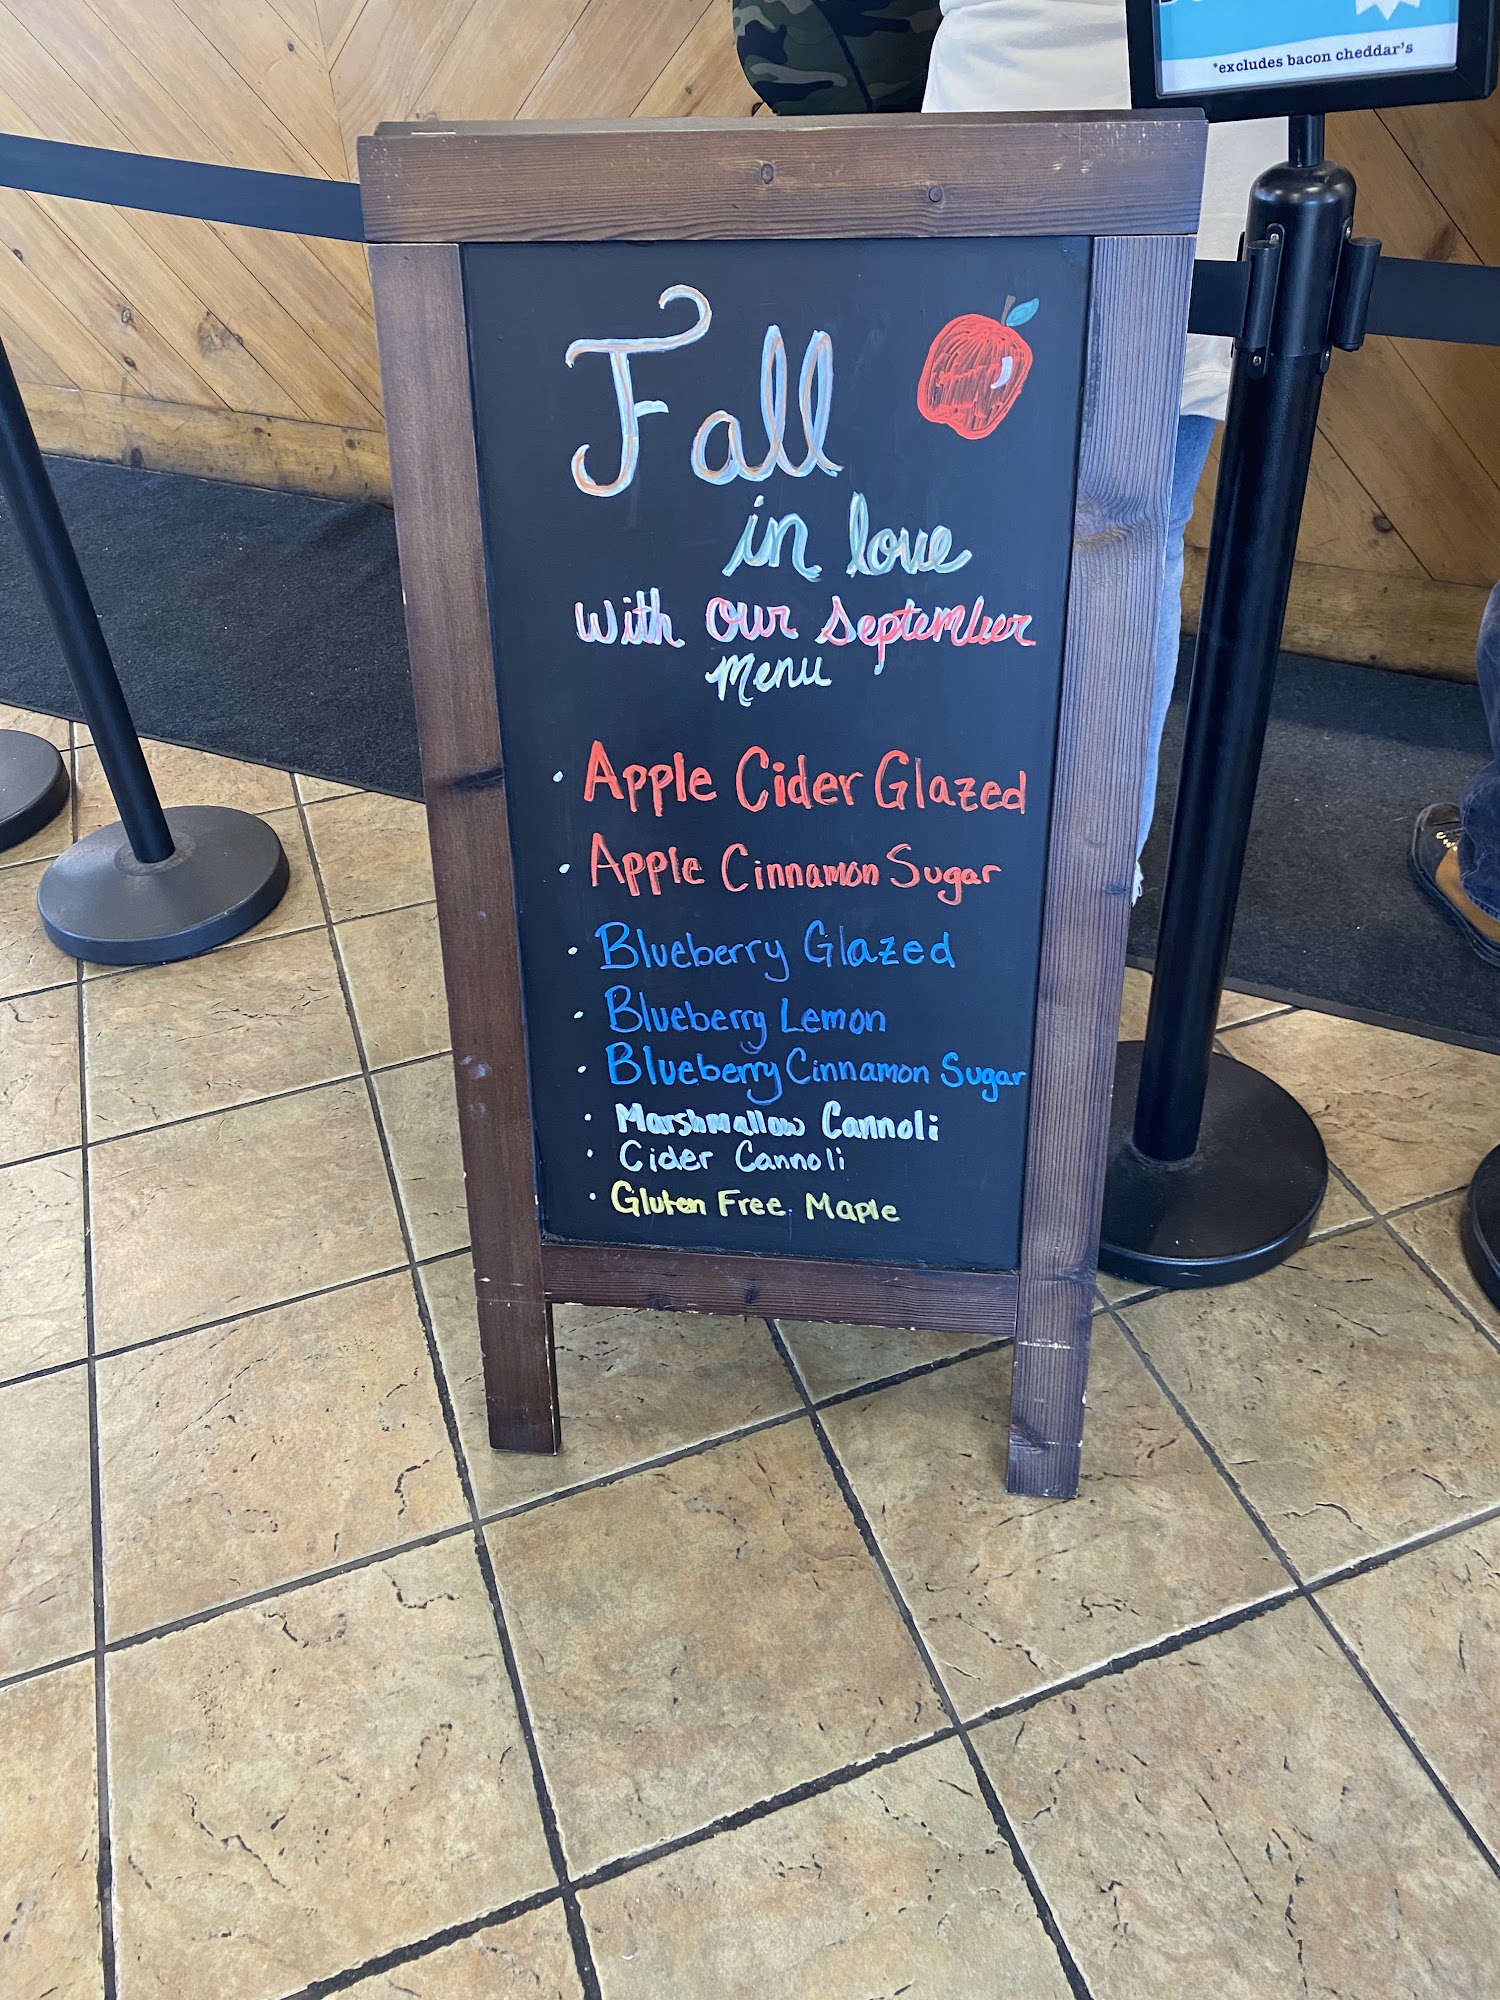 *excludes bacon cheddar's
Fall
in love
with our September
Menu
• Apple Cider Glazed
• Apple Cinnamon Sugar
• Blueberry Glazed
• Blueberry Lemon
• Blueberry Cinnamon Sugar
• Marshmallow Cannoli
• Cider Cannoli
• Gluten Free Maple